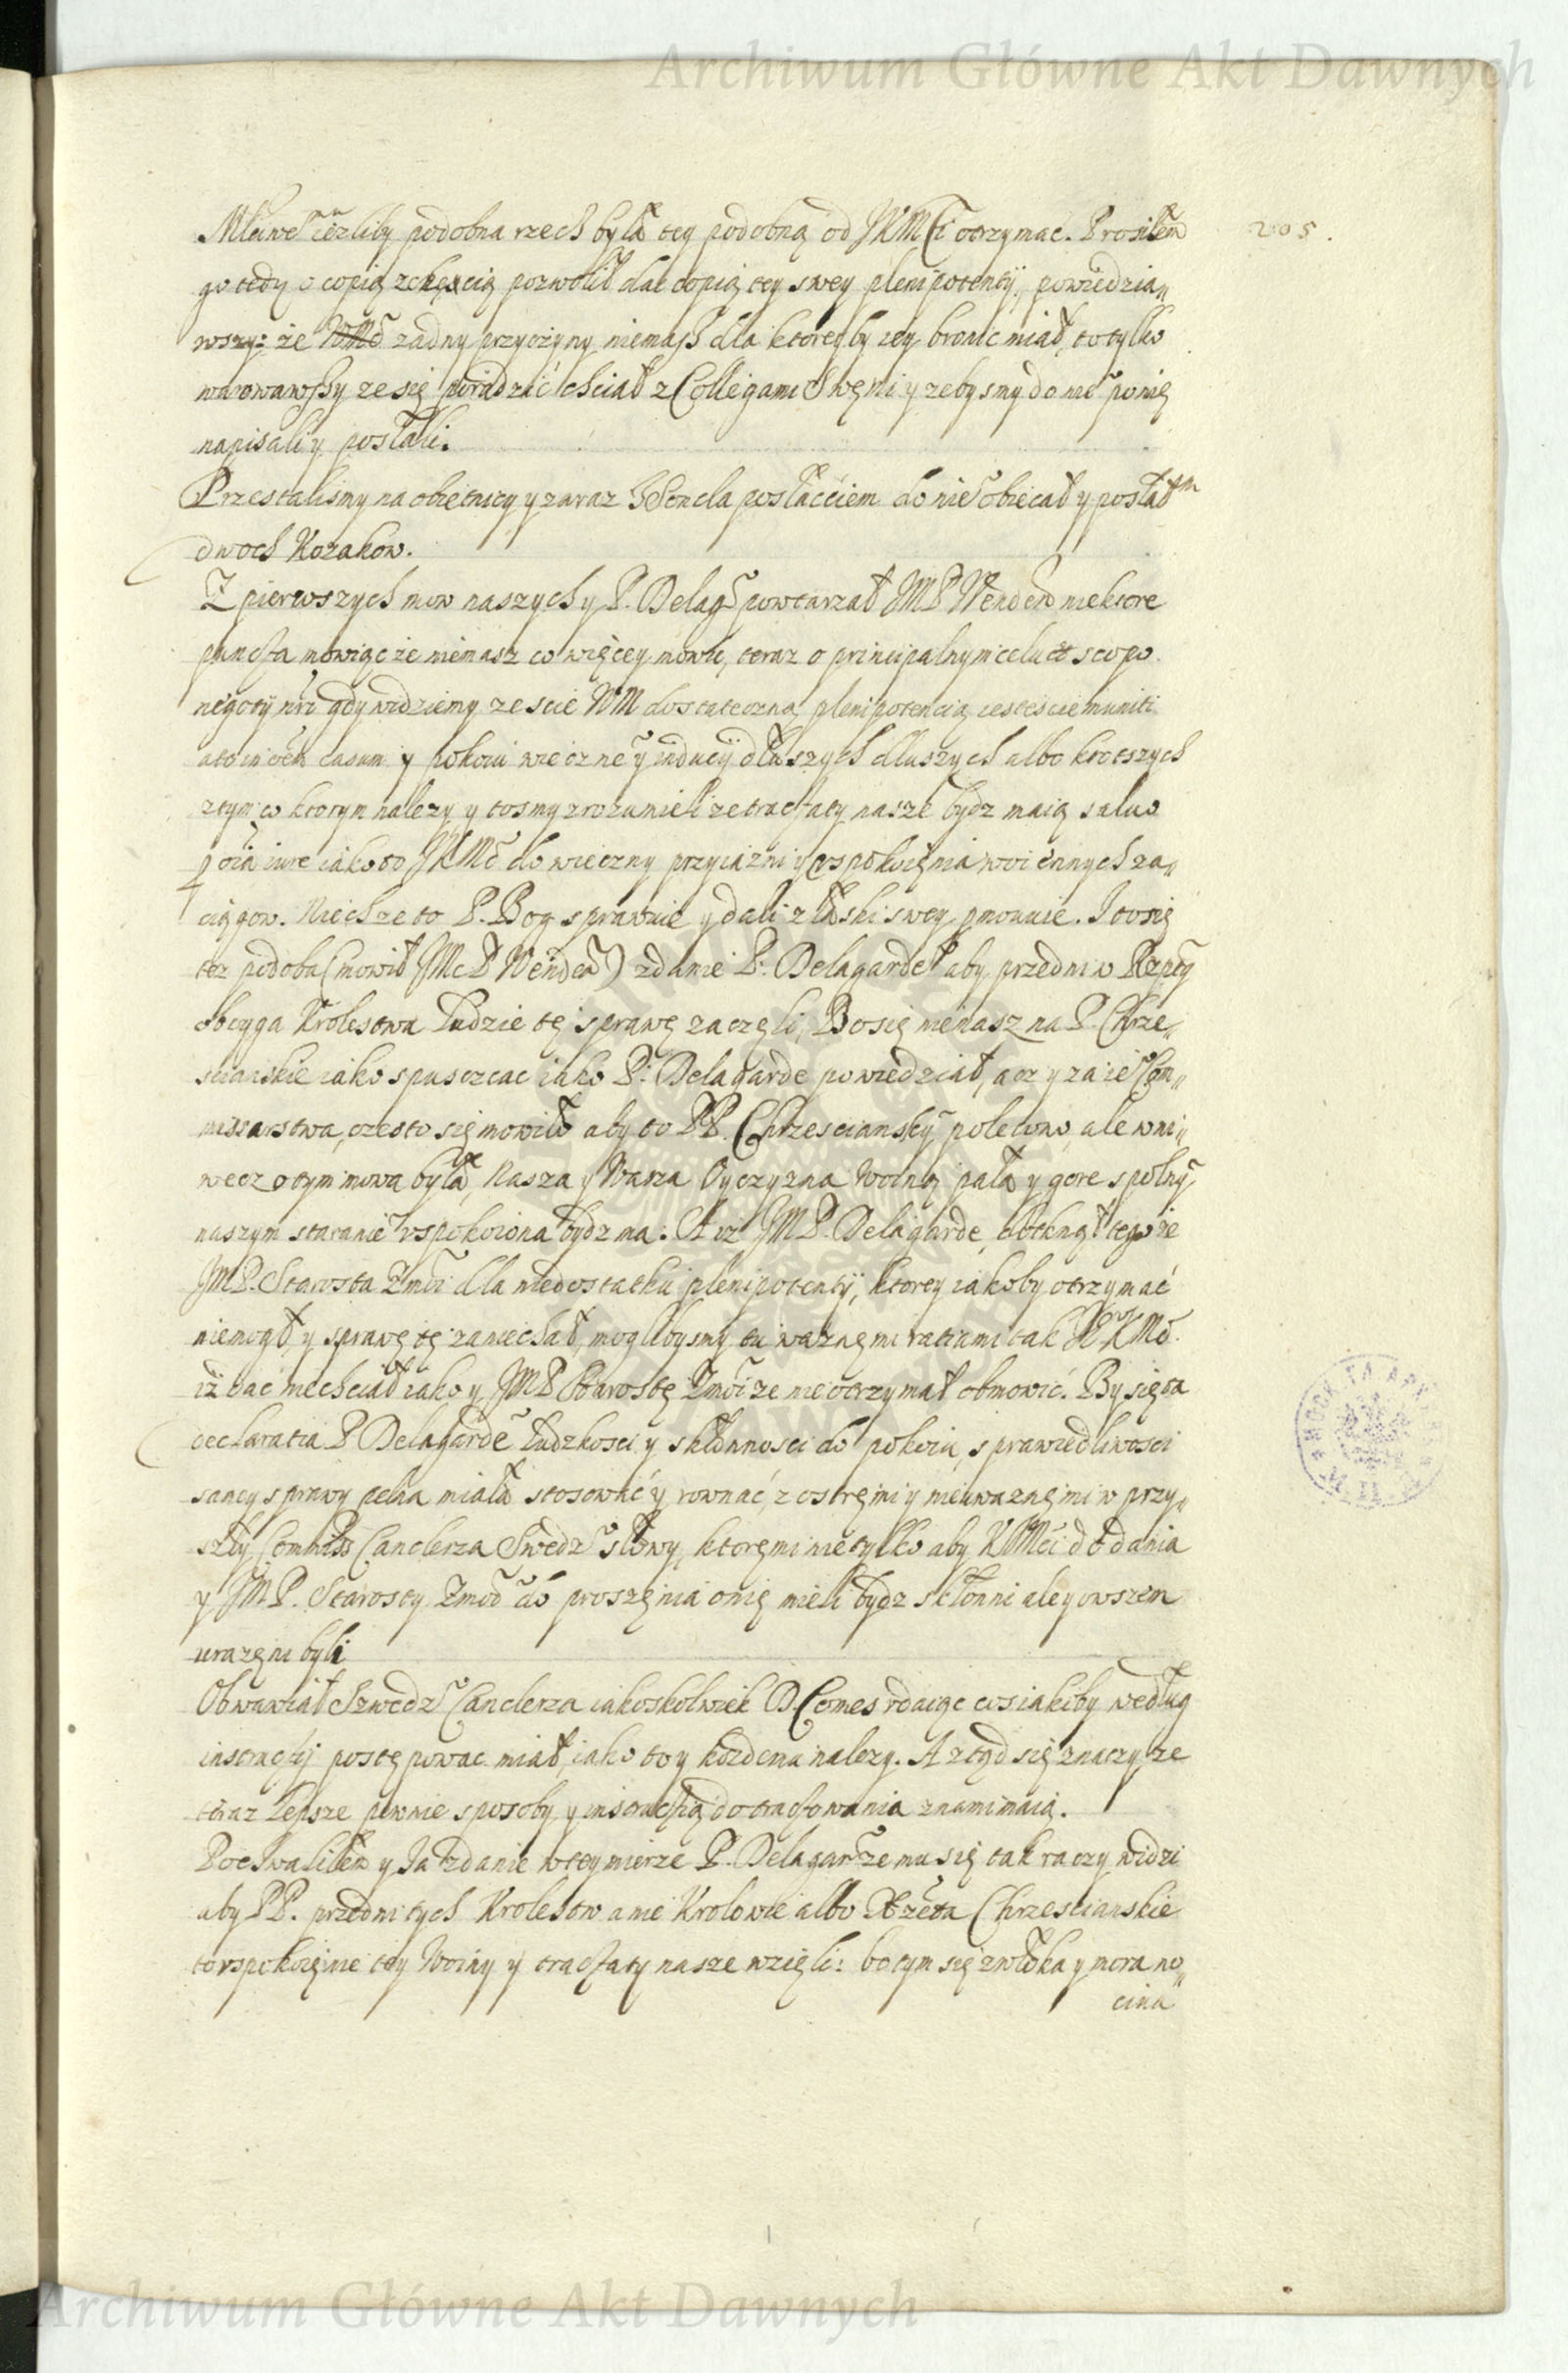 Archiwum Główne Akt Dawnych
205.
Mławe iezliby podobna rzecz była tey podobną od JKMći otrzymać. Prosiłem
go tedy o copią z chęcią pozwolił dać copią tey swey plenipotentÿ, powiedzia„
wszy: że WMć żadny przyczyny niemasz dla ktoreyby iey bronić miał, to tylko
warowawszy ze się poradzić chciał z Collegami swęmi y zebysmy do nie° ponię
napisali y posłali.
Przestalismy na obietnicy y zaraz posłać do nie° obiecał y posłałem
dwoch Kozakow.
Z pierwszych mow naszych y P. Delag: powtarzał JMP Wenden niektore
puncta mowiąc że niemasz co więcey mowić, teraz o principalnym celu et scopo
negotÿ nri gdy widziemy ze scie WM dostateczną plenipotencią iestescie muniti
ato in casum y pokoiu wieczne° y induciÿ dłuszych dluszych albo krotszych
z tym co ktorym nalezy y tosmy zrozumieli ze tractaty nasze bydz maią saluo
iure iako to JKMć do wieczny przyiazni y vspokoięnia woiennych za„
ciągow. Niechze to P. Bog sprawuie y dali z łaski swey pmouuie. I to się
tez podoba (mowił JMc P Wenden) zdanie P. Delagarde aby przedni w Rzptey
oboyga Krolestwa ludzie tę sprawę zaczęli, Bo się niemasz na P. Chrze„
scianskie iako spuszczac iako P. Delagarde powiedział, acz y za ie° Com„
missarstwa, często się mowiło aby to PP. Chrzescianskim polecono, ale wni„
wecz o tym mowa była, Nasza y Wasza Oyczyzna Woiną pała y gore spolnym
naszym staraniem vspokoiona bydz ma. A iz JMP. Delagarde, dotknął tego że
JMP. Starosta Zmoi: dla niedostatku plenipotentÿ, ktorey iakoby otrzymać
niemogł y sprawę tę zaniechał, moglibysmy tu waznęmi ratiami tak JKMć.
iż dac niechciał iako y JMP Starostę Zmoi: ze nieotrzymał obmowić. By się ta
declaratia P Delagarde ludzkosci y skłonnosci do pokoiu, sprawiedliwosci
samey sprawy pełna miała stosować y rownać, z ostręmi y nieuwaznęmi w przy„
szły Commiss Canclerza Swedz° słowy, ktoręmi nie tylko aby KJMći do dania
y JMP. Starosty Zmo: do proszęnia onię mieli bydz skłonni ale y owszem
urazęni byli
Obwawiał Szwedz° Canclerza iakozkolwiek D. Comes vdaiąc cos iakiby według
instructÿ postępowac miał, iako to y kozdemu nalezy. A ztąd się znaczy, ze
teraz lepsze pewnie sposoby y instructią do tractowania znami maią.
Pochwaliłem y Ja zdanie w tey mierze P. Delagar: ze mu się tak raczy widzi
aby PP. przedni tych Krolestw a nie Krolowie albo Xżęta Chrzescianskie
to vspokoięnie tey Woiny y tractaty nasze wzięli: bo tym się zwłoka y mora no„
cina
Archiwum Główne Akt Dawnych